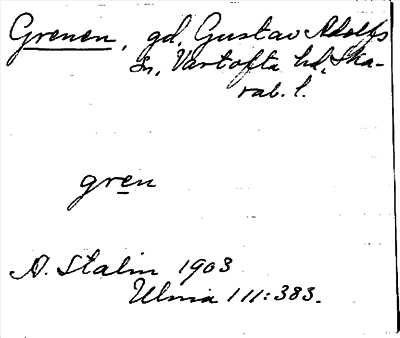 Grenen, gd, Gustav Adolfs
sn, Vartofta hd, Ska-
rab. l.
gren
A. Stalin 1903
Ulma 111:383.